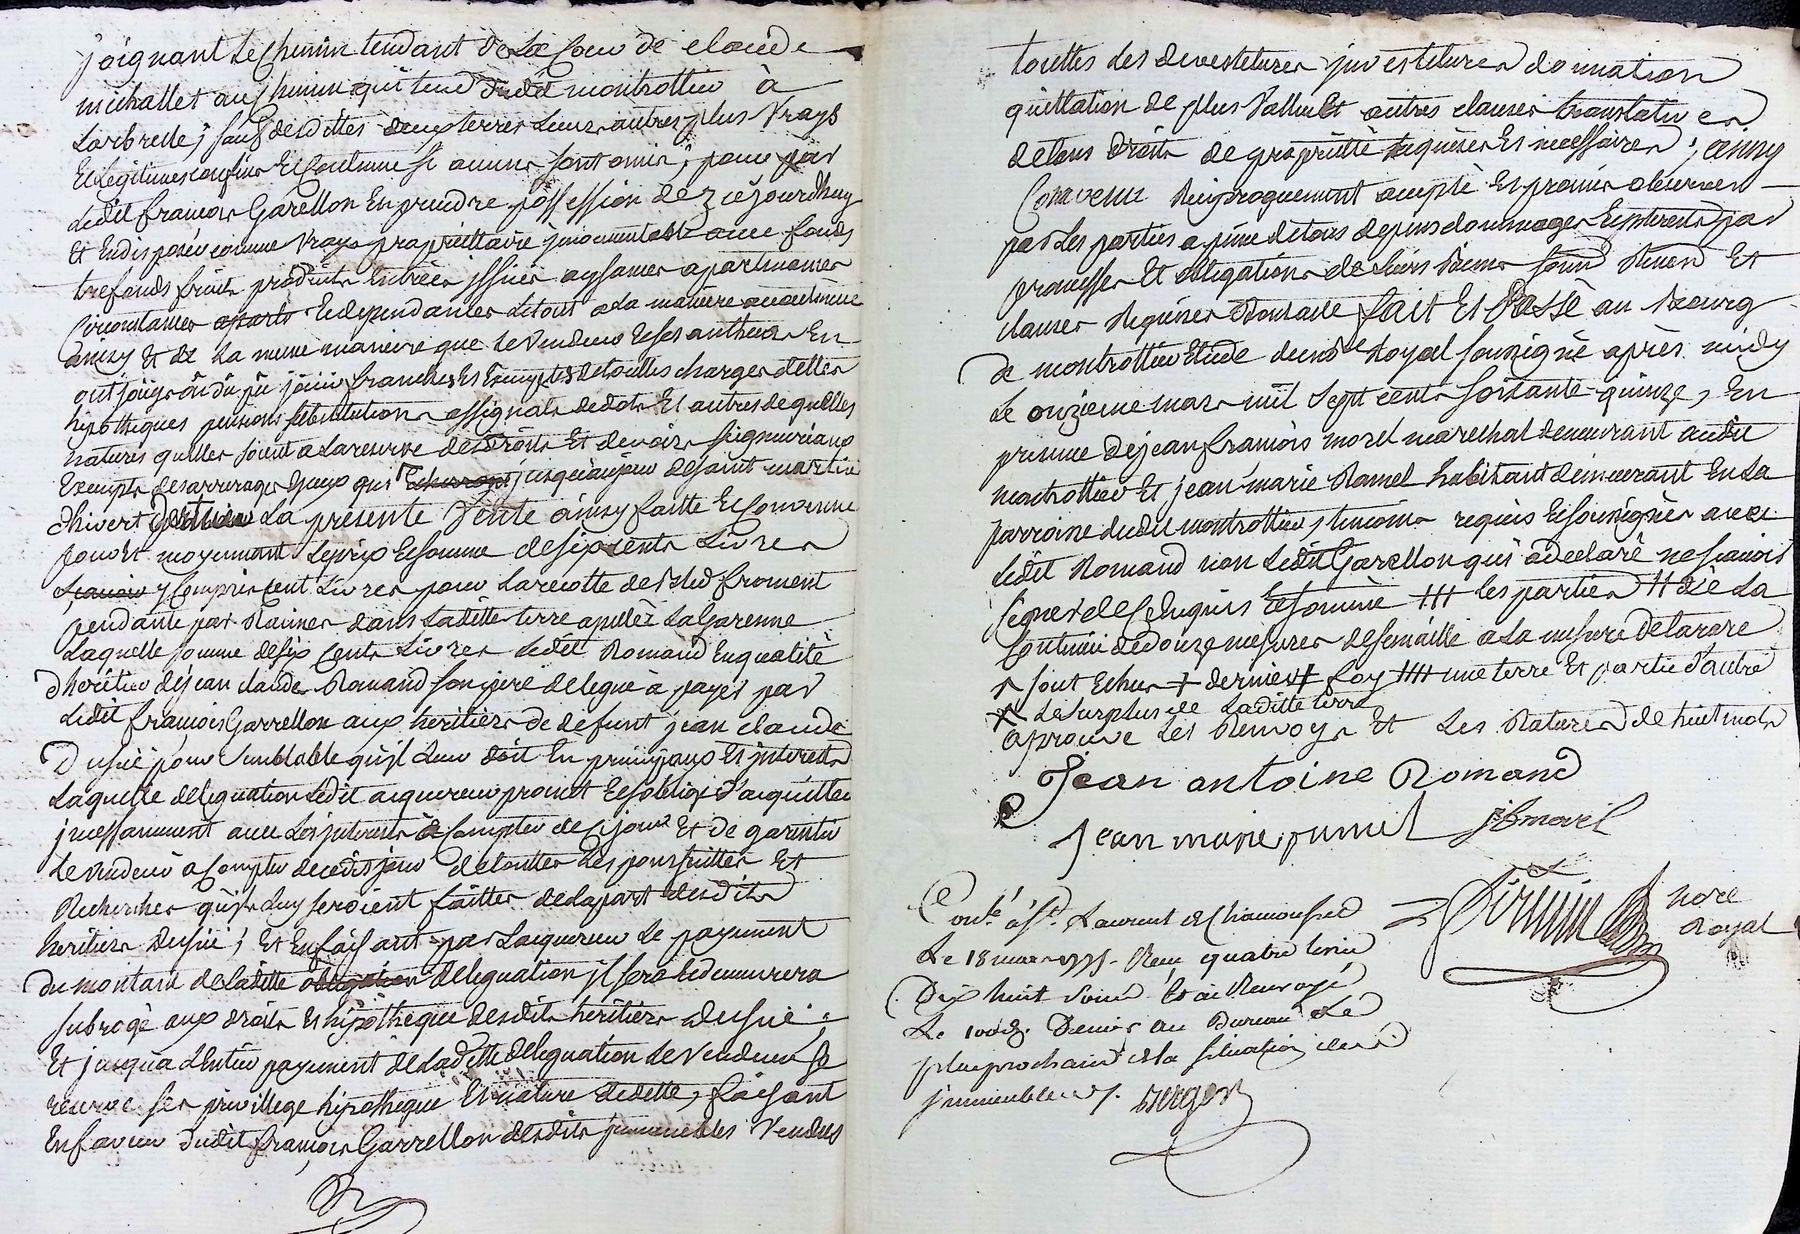 joignant le Chemin tendant de la Cour de claude
michallet au Chemin qui tend dudit montrottier à
Larbrelle, sauf desdittes deux terres Leurs autres plus Vrays
Et Legitimes confins Et Coutume si aucuns sont omis, pour par
Ledit francois Garellon En prendre possession dez cejourdhuy
Et En disposer comme Vray propriettaire jncommutable avec fonds
trefonds fruits produits Entrées jssues aysances apartenances
Circonstances Et dependances Le tout a la maniere accoutumée
ainsy Et de La meme maniere que le Vendeur Et ses autheurs En
ont jouy ou dû pû jouir franches Et Exemptes de touttes charges dettes
hipotheques pensions substitutions assignats de dots Et autres de quelles
natures qu'elles soient a La reserve des droits Et devoirs seigneuriaux
Exempts des arrerages d'jceux qui Echerront jusqu'au jour de saint martin
d'hivert La presente Vente ainsy faitte Et Convenue
pour Et moyennant Le prix Et somme de six cents Livres
y Compris Cent Livres pour La recolte de bled froment
pendante par Racines dans Laditte terre apellée La Garenne
Laquelle somme de six Cents Livres Ledit Romand En qualité
d'heritier de jean claude Romand son pere delegue à payer par
Ledit francois Garrellon aux heritiers de defunt jean claude
Dussuc pour semblable qu'il Leur doit En principaux Et jnterests
Laquelle deleguation Ledit acquereur promet Et s'oblige d'acquitter
jncessamment avec Les jnterests à Compter de Ce jour Et de garentir
Le vendeur a Compter de cedit jour de touttes Les poursuittes Et
Recherches qui Luy seroient faittes de La part desdits
heritiers Dussuc, Et En faisant par L'acquereur Le payement
Du montant de Laditte obligation deleguation jl sera Et demeurera
subrogé aux droits Et hipotheque desdits heritiers Dussuc;
Et jusqu'a L'Entier payement de Laditte deleguation Le Vendeur se
reserve ses privillege hipotheque Et nature de dette, faisant
En faveur dudit francois Garrellon desdits jmmeubles Vendus
touttes des devestitures jnvestitures donnation
quittation de plus Vallue Et autres clauses translatives
de tous droits de propriétté requises Et necessaires; ainsy
Convenu Reciproquement accepté Et promis observer
par Les parties a peine de tous depens dommages Et jnterests par
promesses Et obligations de Leurs biens soum Renon Et
clauses Requises fait Et Passé au bourg
de montrottier Etude du no.re Royal soussigné après midy
Le onzieme mars mil sept cents soixante quinze, En
presence de jean francois morel marechal demeurant audit
montrottier Et jean marie Ramel habitant demeurant En La
parroisse dudit montrottier, temoins requis Et soussignés avec
Ledit Romand non Ledit Garellon qui a declaré ne scavoir
signer de Ce Enquis Et sommé ‡ les parties ‡ de La
Contenüe de douze mesures de semaille a La mesure de tarare
sont Echus ‡ dernier ‡ foy une terre Et partie d'autre
Le surplus de Laditte terre
aprouvé Les Renvoys Et Les Ratures de huit mots
Jean antoine Romand
jean marie ramel jf morel
no.re
Royal
Con.lé à S.t Laurent de Chamousset
Le 18 mars 1775. Reçu quatre Livres
Dix huit sous Et ai Renvoyé
Le 100e. Denier au Bureau Le
plus prochain de la situation des
jmmeubles.